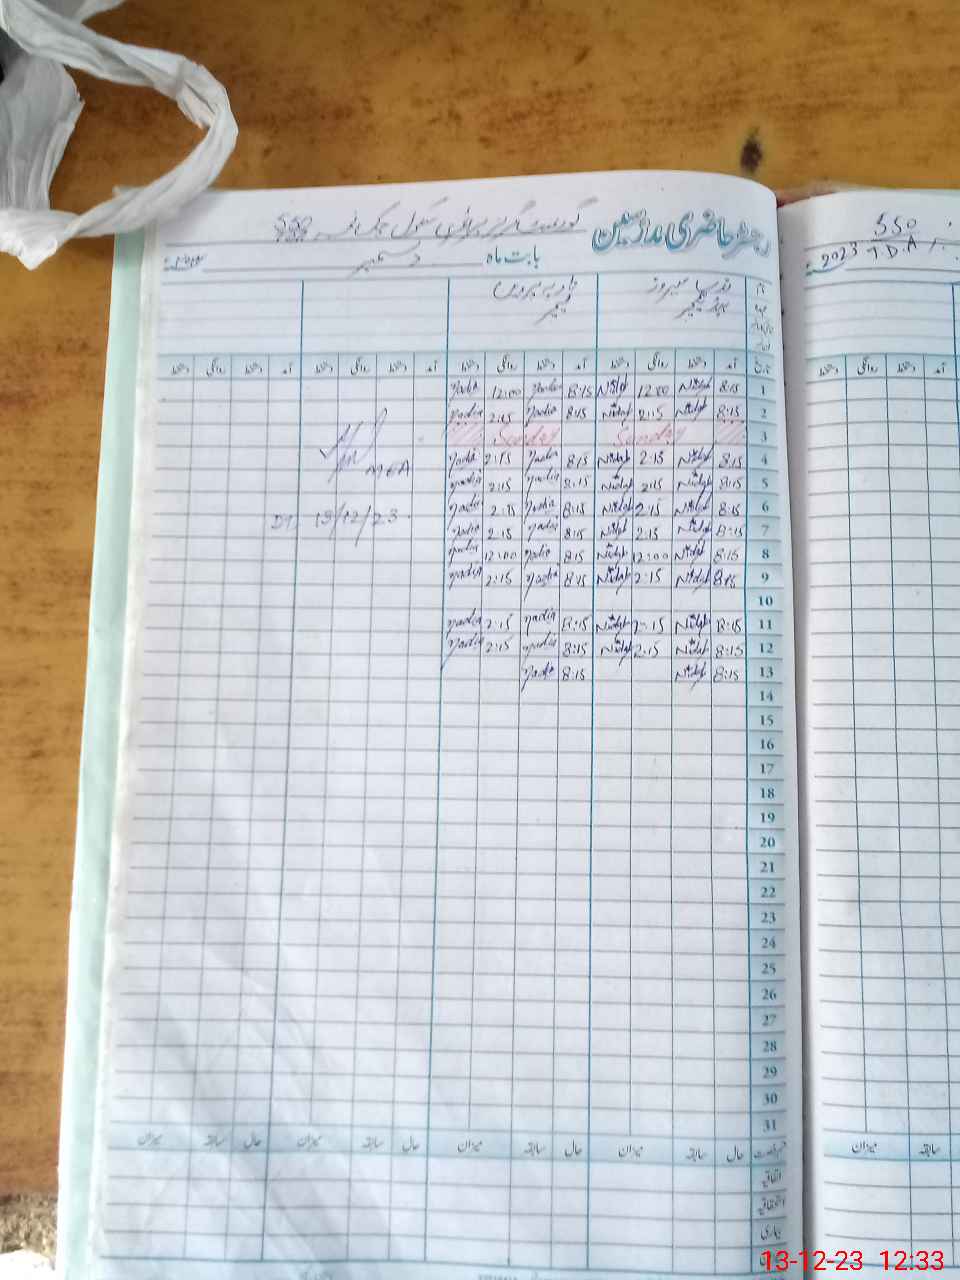 رجسٹر حاضری مدرسین گورنمنٹ گرلز پرائمری سکول چک نمبر 550
بابت ماہ دسمبر
550
2023 T.D.A
نادیہ پروین
ہیڈ ٹیچر
ٹیچر
تاریخ آمد دستخط روانگی دستخط آمد دستخط روانگی دستخط آمد دستخط روانگی دستخط آمد دستخط روانگی دستخط
دستخط روانگی دستخط
1 8:15 12:00 8:15 Nadia 12:00 Nadia
2 8:15 2:15 8:15 Nadia 2:15 Nadia
3 Sunday Sunday
4 8:15 2:15 8:15 Nadia 2:15 Nadia
MEA
5 8:15 2:15 8:15 Nadia 2:15 Nadia
6 8:15 2:15 8:15 Nadia 2:15 Nadia
DT. 13/12/23
7 8:15 2:15 8:15 Nadia 2:15 Nadia
8 8:15 12:00 8:15 Nadia 12:00 Nadia
9 8:15 2:15 8:15 Nadia 2:15 Nadia
10
11 8:15 2:15 8:15 Nadia 2:15 Nadia
12 8:15 2:15 8:15 Nadia 2:15 Nadia
13 8:15 8:15 Nadia
14
15
16
17
18
19
20
21
22
23
24
25
26
27
28
29
30
31
قسم رخصت حال سابقہ میزان حال سابقہ میزان حال سابقہ میزان حال سابقہ میزان
سابقہ میزان
اتفاقیہ
استحقاقیہ
بیماری
13-12-23 12:33